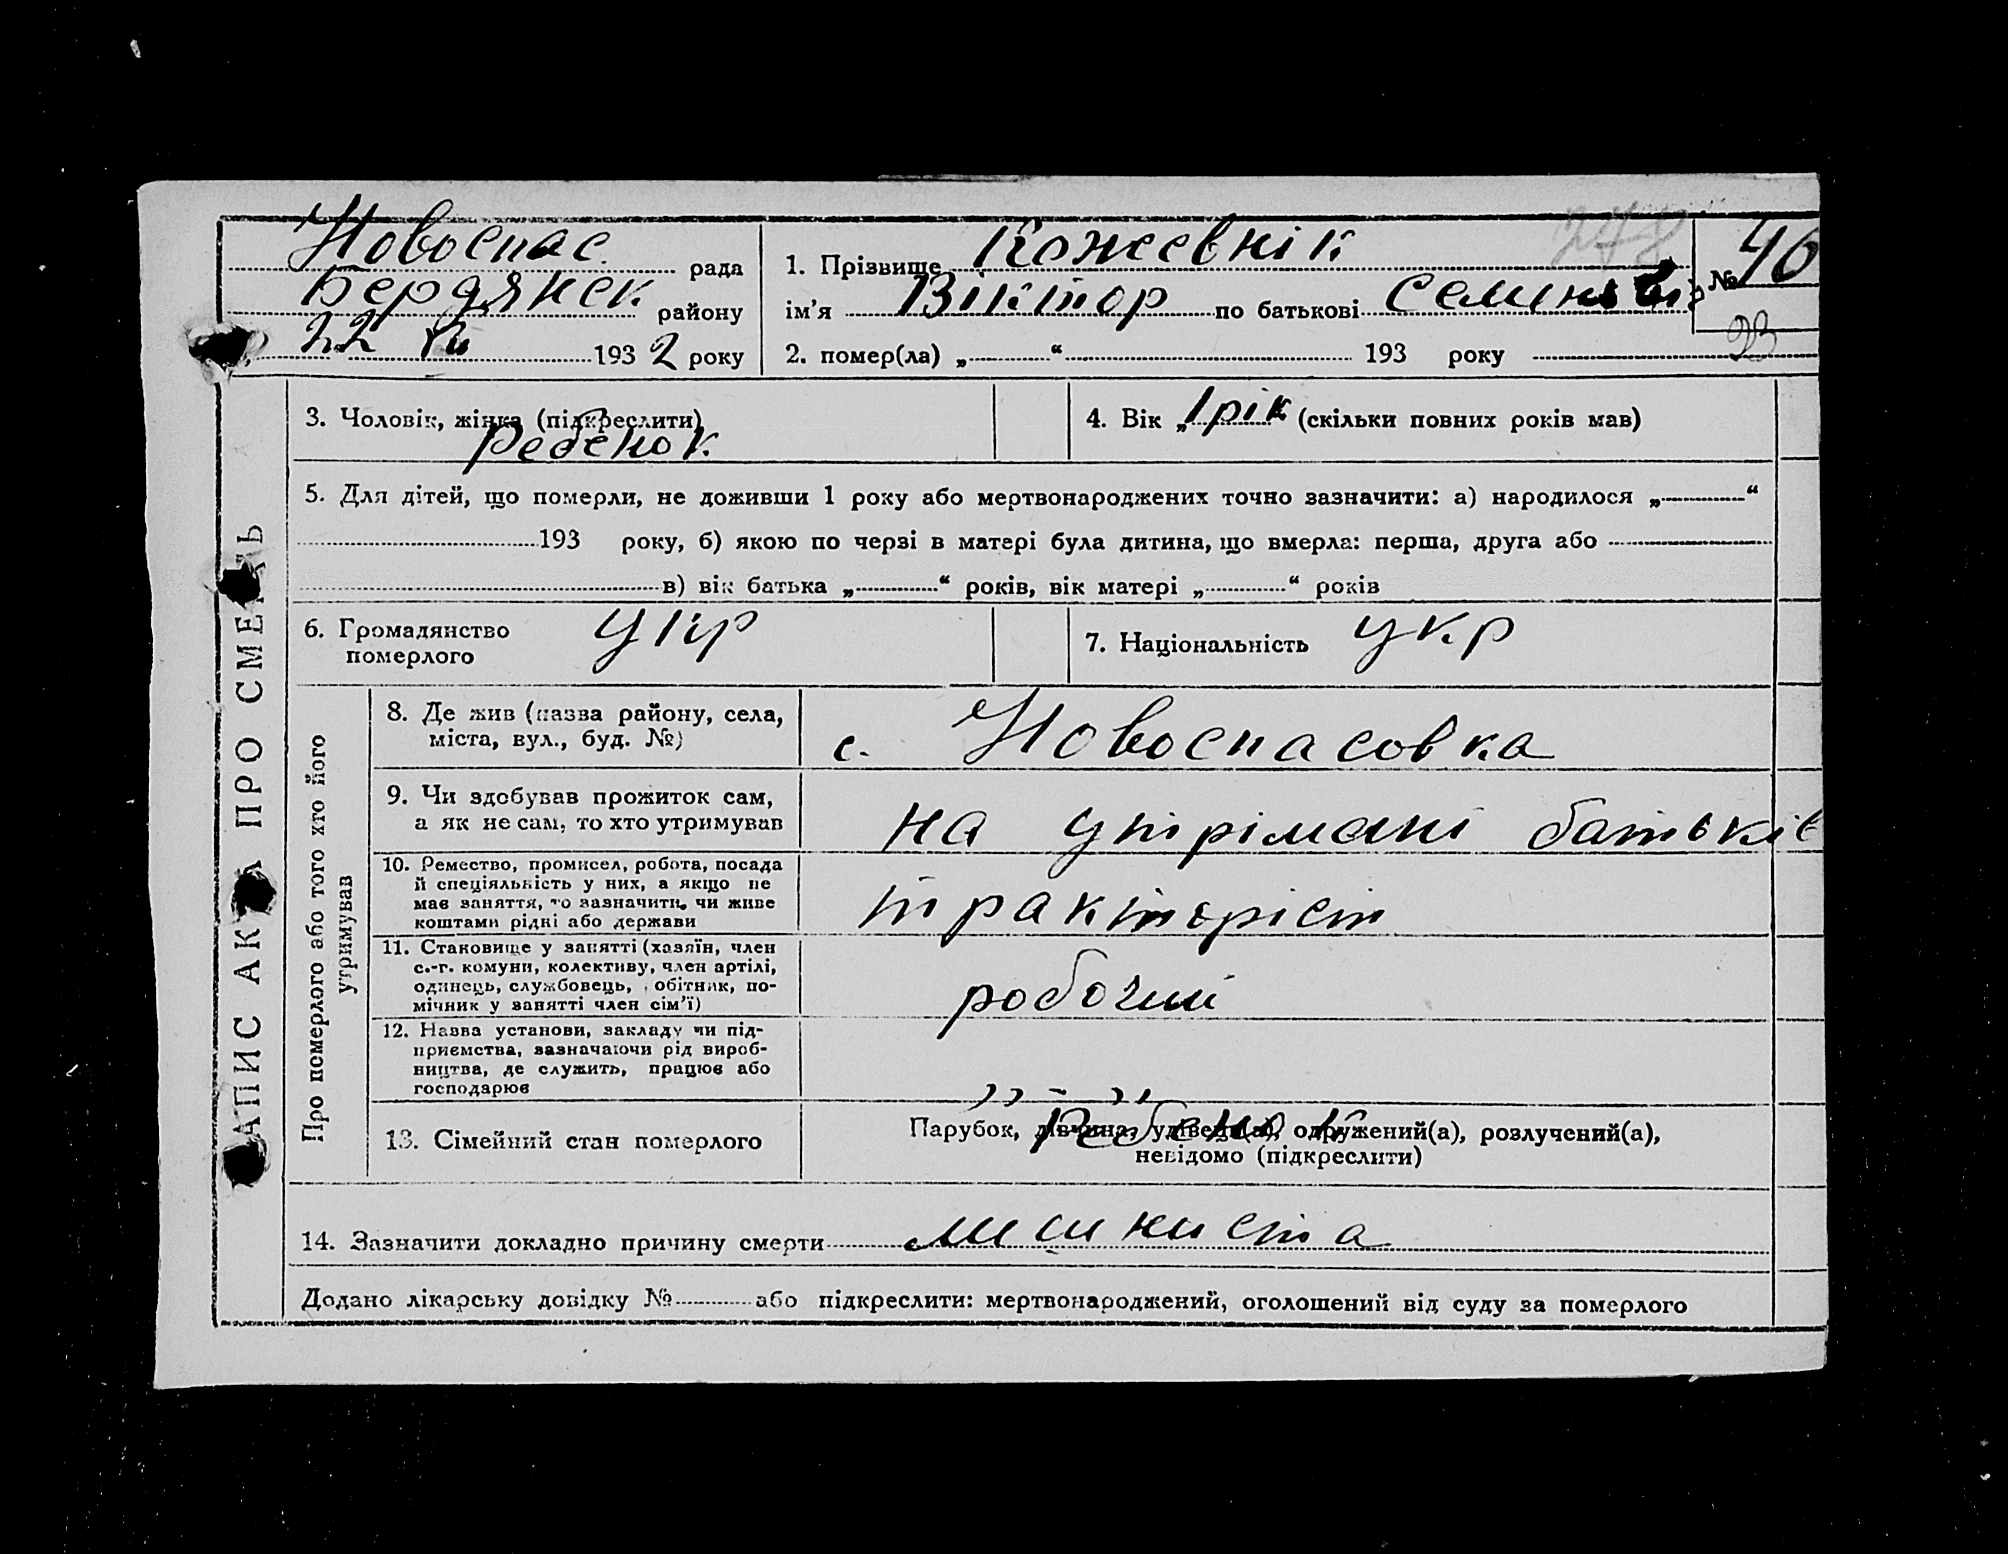 Новоспас. рада
Бердянск району
22 193 2 року
1. Прізвище Кожевнік
ім'я Віктор по батькові
2. помер(ла) „ “ 193 року
278
№ 46
23
ЗАПИС АКТА ПРО СМЕРТЬ
3. Чоловік, жінка (підкреслити)
Ребенок
4. Вік „1 рік (скільки повних років мав)
5. Для дітей, що померли, не доживши 1 року або мертвонароджених точно зазначити: а) народилося „ “
193 року, б) якою по черзі в матері була дитина, що вмерла: перша, друга або
в) вік батька „ “ років, вік матері „ “ років
6. Громадянство укр
померлого
7. Національність укр
Про померлого або того хто його
утримував
8. Де жив (назва району, села,
міста, вул., буд. №)
с. Новоспасовка
9. Чи здобував прожиток сам,
а як не сам, то хто утримував
на утрімані батьків
10. Ремество, промисел, робота, посада
й спеціяльність у них, а якщо не
має заняття, то зазначити, чи живе
коштами рідні або держави
тракторіст
11. Становище у занятті (хазяїн, член
с.-г. комуни, колективу, член артілі,
одинець, службовець, робітник, по-
мічник у занятті член сім'ї)
робочий
12. Назва установи, закладу чи під-
приємства, зазначаючи рід вироб-
ництва, де служить, працює або
господарює
„ - „
13. Сімейний стан померлого
Ребенок
Парубок, дівчина, удівець(а), одружений(а), розлучений(а),
невідомо (підкреслити)
14. Зазначити докладно причину смерти
Додано лікарську довідку № або підкреслити: мертвонароджений, оголошений від суду за померлого